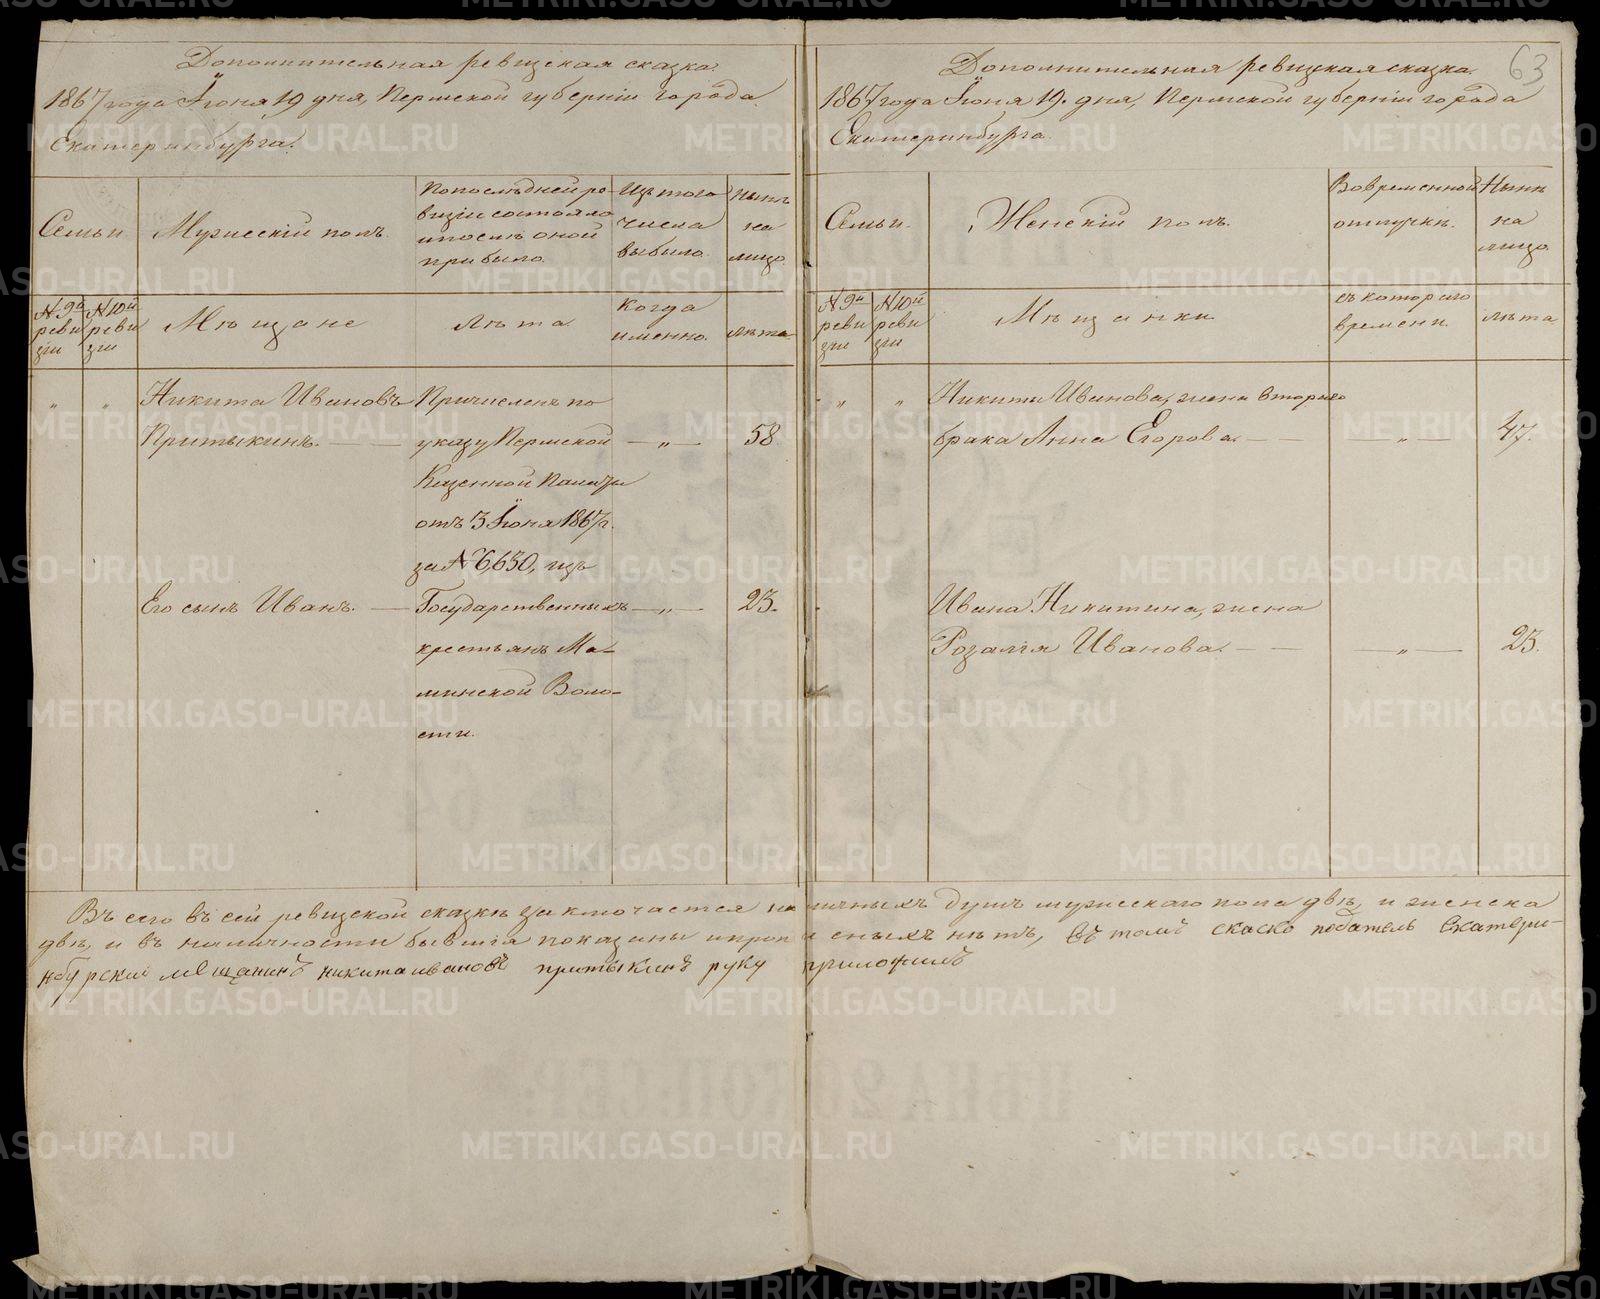 Дополнительная ревизская сказка.
1867 года Іюня 19 дня, Пермской губерніи города
Екатеринбурга.
Семьи
Мужескій полъ.
По послѣдней ре-
визіи состояло
и послѣ оной
прибыло.
Изъ того
числа
выбыло.
Нынѣ
на
лицо
№ 9й
реви
зіи
№ 10й
реви
зіи
Мѣщане
Лѣта
Когда
именно.
лѣта
„ „ Никита Ивановъ
Притыкинъ.
Причисленъ по
указу Пермской
Казенной Палаты
отъ 3 Іюня 1867 г.
за № 6,650, изъ
Государственныхъ
крестьянъ Ма-
минской Воло-
сти.
„ 58
Его сынъ Иванъ.
„ 23.
63
Дополнительная ревизская сказка.
1867 года Іюня 19. дня, Пермской губерніи города
Екатеринбурга.
Семьи.
Женскій полъ.
Во временной
отлучкѣ.
Нынѣ
на
лицо.
№ 9й
реви
зіи
№ 10й
реви
зіи
Мѣщанки
съ котораго
времени.
лѣта
„ „ Никиты Иванова, жена втораго
брака Анна Егорова. „ 47.
Ивана Никитина, жена
Розалія Иванова. „ 23.
Въ сего въ сей ревизской сказкѣ заключается наличныхъ душъ мужескаго пола двѣ, и женска
двѣ, и въ наличности бывшія показаны и прописныхъ нѣтъ, въ томъ скаско податель Екатери-
нбурскій мещанинъ никита ивановъ притыкинъ руку приложилъ
METRIKI.GASO-URAL.RU
ЦѢНА 20 КОП. СЕР.
18 64